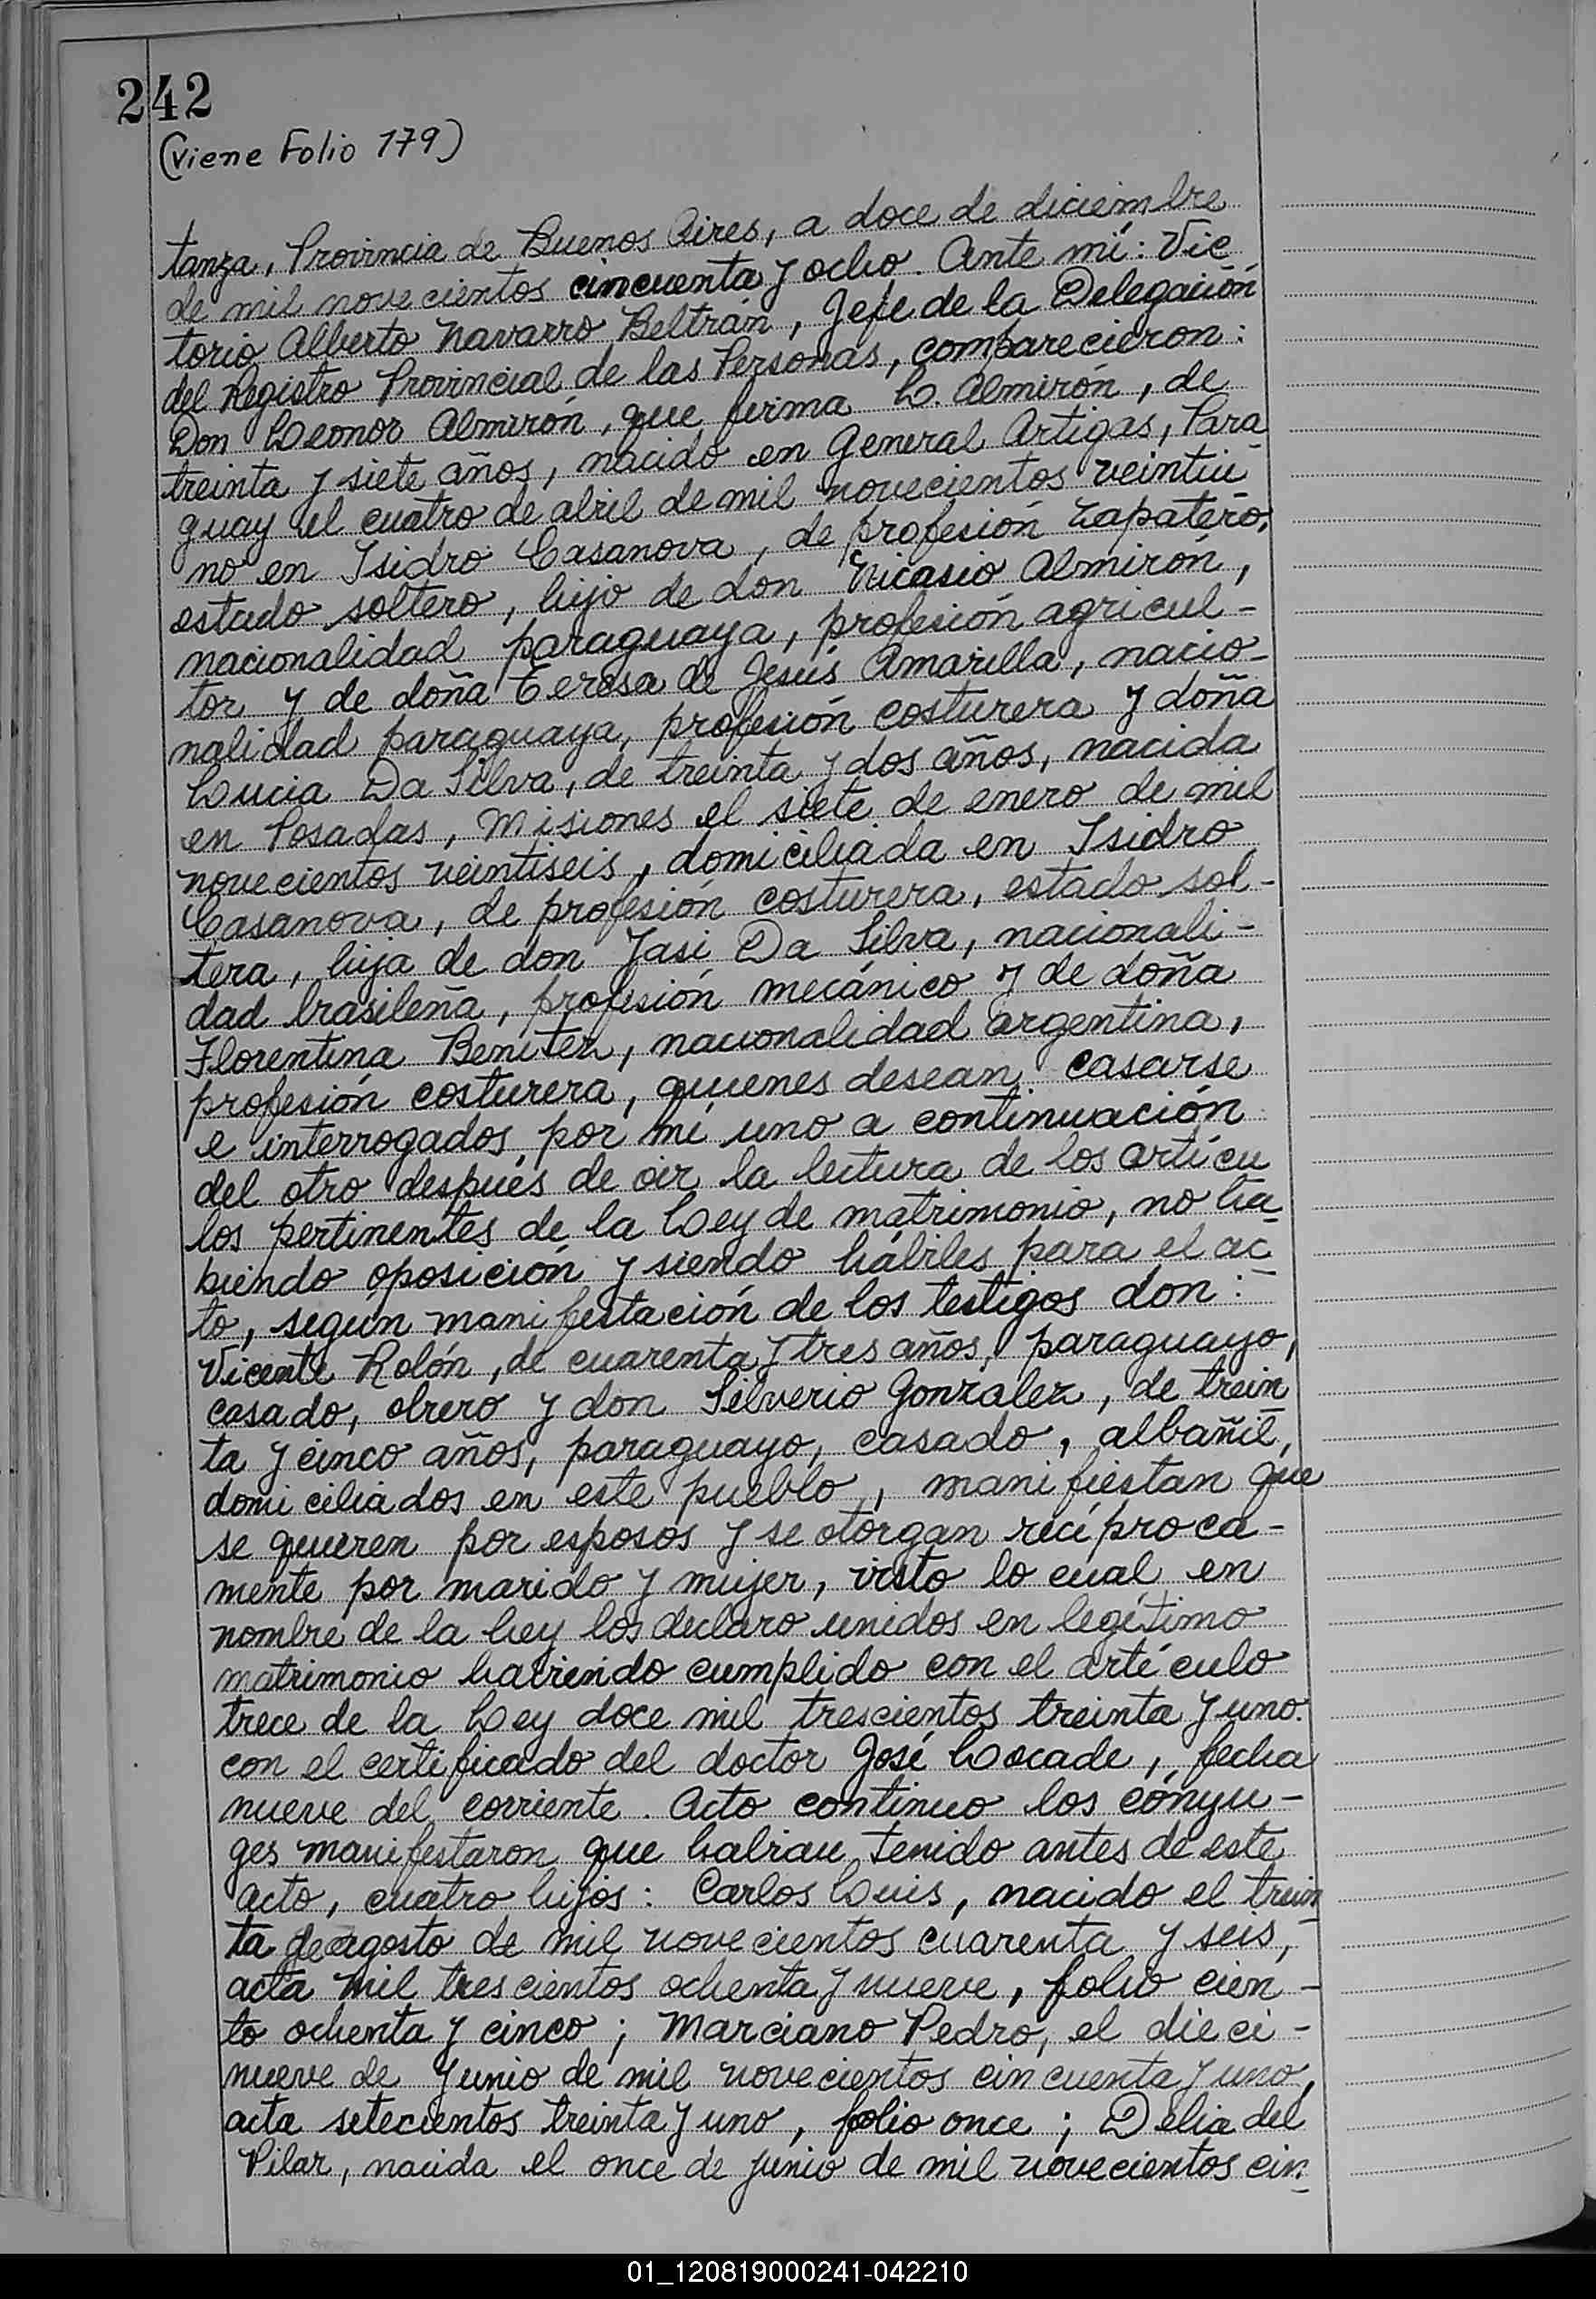 242
(viene Folio 179)
tanza, Provincia de Buenos Aires, a doce de diciembre
de mil novecientos cincuenta y ocho. Ante mí: Vic
torio Alberto Navarro Beltrán, Jefe de la Delegación
del Registro Provincial de las Personas, comparecieron:
Don Leonor Almirón, que firma L. Almirón, de
treinta y siete años, nacido en General Artigas, Para
guay el cuatro de abril de mil novecientos veintiu
no en Isidro Casanova, de profesión zapatero,
estado soltero, hijo de don Nicasio Almirón,
nacionalidad paraguaya, profesión agricul-
tor y de doña Teresa de Jesús Amarilla, nacio-
nalidad paraguaya, profesión costurera y doña
Lucia Da Silva, de treinta y dos años, nacida
en Posadas, Misiones el siete de enero de mil
novecientos veintiseis, domiciliada en Isidro
Casanova, de profesión costurera, estado sol-
tera, hija de don Jasi Da Silva, nacionali-
dad brasileña, profesión mecánico y de doña
Florentina Benitez, nacionalidad argentina,
profesión costurera, quienes desean casarse
e interrogados por mí uno a continuación
del otro después de oir la lectura de los artícu
los pertinentes de la Ley de matrimonio, no ha
biendo oposición y siendo hábiles para el ac
to, segun manifestación de los testigos don:
Vicente Rolón, de cuarenta y tres años, paraguayo,
casado, obrero y don Silverio Gonzalez, de trein
ta y cinco años, paraguayo, casado, albañil,
domiciliados en este pueblo, manifiestan que
se quieren por esposos y se otorgan recíproca-
mente por marido y mujer, visto lo cual en
nombre de la ley los declaro unidos en legítimo
matrimonio habiendo cumplido con el artículo
trece de la Ley doce mil trescientos treinta y uno.
con el certificado del doctor José Locade, fecha
nueve del corriente. Acto continuo los cónyu-
ges manifestaron que habian tenido antes de este
acto, cuatro hijos: Carlos Luis, nacido el trein
ta de agosto de mil novecientos cuarenta y seis,
acta mil trescientos ochenta y nueve, folio cien-
to ochenta y cinco; Marciano Pedro, el dieci-
nueve de Junio de mil novecientos cincuenta y uno,
acta setecientos treinta y uno, folio once; Delia del
Pilar, nacida el once de junio de mil novecientos cin
01_120819000241-042210